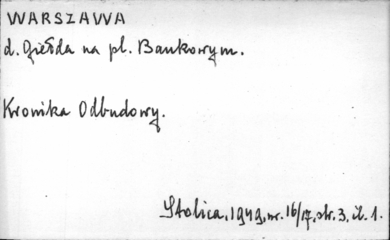 WARSZAWA
d. Giełda na pl. Bankowym.
Kronika Odbudowy.
Stolica, 1949, nr. 16/17, str. 3, il. 1.